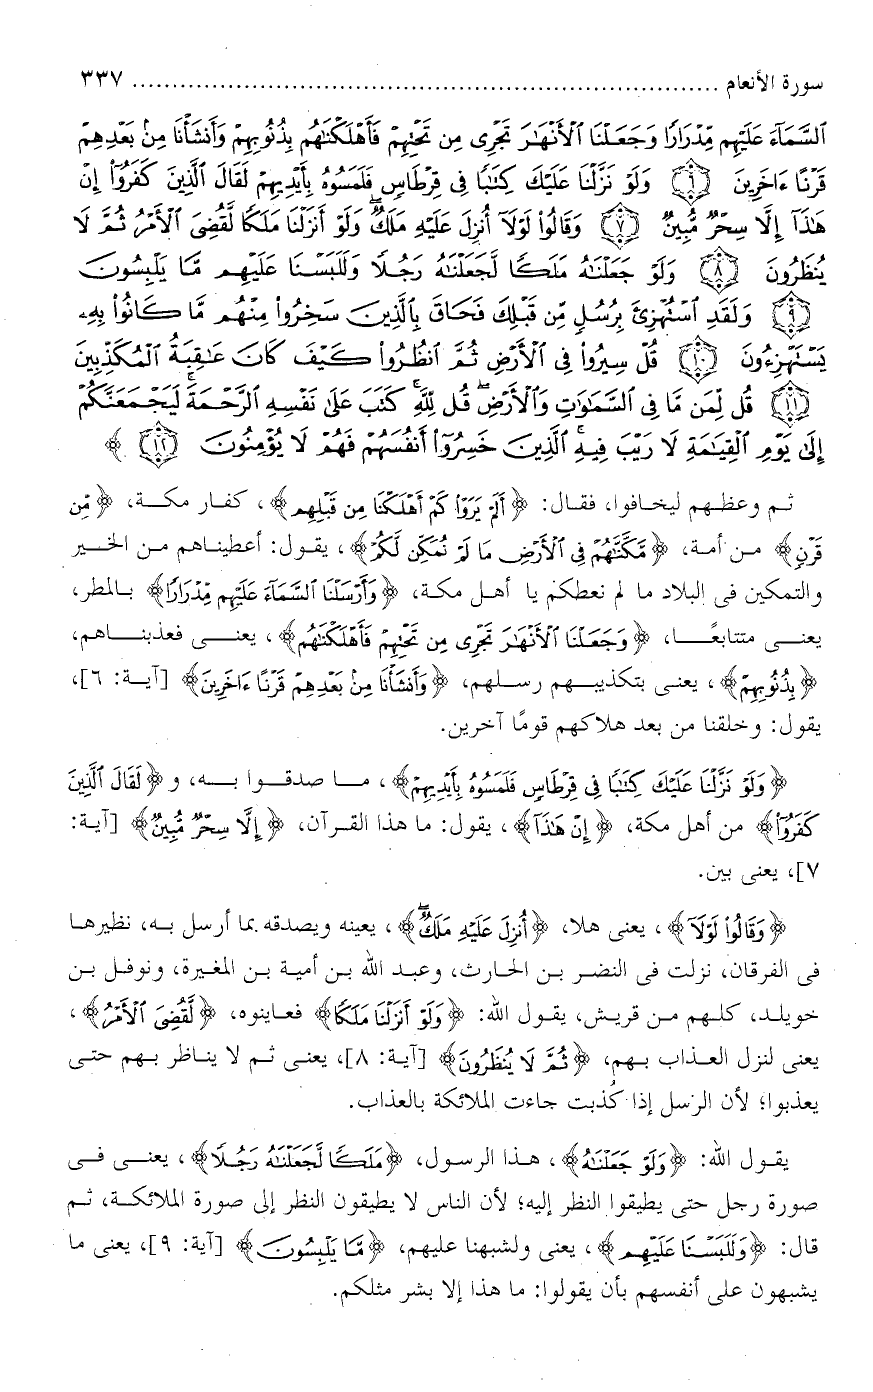 سورة الأنعام ........................................................................ ٣٣٧
السَّمَآءَ عَلَيْهِم مِّدْرَارًا وَجَعَلْنَا الْأَنْهَٰرَ تَجْرِى مِن تَحْتِهِمْ فَأَهْلَكْنَٰهُم بِذُنُوبِهِمْ وَأَنشَأْنَا مِنۢ بَعْدِهِمْ
قَرْنًا ءَاخَرِينَ ﴿٦﴾ وَلَوْ نَزَّلْنَا عَلَيْكَ كِتَٰبًا فِى قِرْطَاسٍ فَلَمَسُوهُ بِأَيْدِيهِمْ لَقَالَ الَّذِينَ كَفَرُوٓا۟ إِنْ
هَٰذَآ إِلَّا سِحْرٌ مُّبِينٌ ﴿٧﴾ وَقَالُوا۟ لَوْلَآ أُنزِلَ عَلَيْهِ مَلَكٌ ۖ وَلَوْ أَنزَلْنَا مَلَكًا لَّقُضِىَ الْأَمْرُ ثُمَّ لَا
يُنظَرُونَ ﴿٨﴾ وَلَوْ جَعَلْنَٰهُ مَلَكًا لَّجَعَلْنَٰهُ رَجُلًا وَلَلَبَسْنَا عَلَيْهِم مَّا يَلْبِسُونَ
﴿٩﴾ وَلَقَدِ اسْتُهْزِئَ بِرُسُلٍ مِّن قَبْلِكَ فَحَاقَ بِالَّذِينَ سَخِرُوا۟ مِنْهُم مَّا كَانُوا۟ بِهِۦ
يَسْتَهْزِءُونَ ﴿١٠﴾ قُلْ سِيرُوا۟ فِى الْأَرْضِ ثُمَّ انظُرُوا۟ كَيْفَ كَانَ عَٰقِبَةُ الْمُكَذِّبِينَ
﴿١١﴾ قُل لِّمَن مَّا فِى السَّمَٰوَٰتِ وَالْأَرْضِ ۖ قُل لِّلَّهِ ۚ كَتَبَ عَلَىٰ نَفْسِهِ الرَّحْمَةَ ۚ لَيَجْمَعَنَّكُمْ
إِلَىٰ يَوْمِ الْقِيَٰمَةِ لَا رَيْبَ فِيهِ ۚ الَّذِينَ خَسِرُوٓا۟ أَنفُسَهُمْ فَهُمْ لَا يُؤْمِنُونَ ﴿١٢﴾ ﴾
ثم وعظهم ليخافوا، فقال: ﴿أَلَمْ يَرَوْا۟ كَمْ أَهْلَكْنَا مِن قَبْلِهِم﴾، كفار مكة، ﴿مِّن
قَرْنٍ﴾ من أمة، ﴿مَّكَّنَّٰهُمْ فِى الْأَرْضِ مَا لَمْ نُمَكِّن لَّكُمْ﴾، يقول: أعطيناهم من الخير
والتمكين فى البلاد ما لم نعطكم يا أهل مكة، ﴿وَأَرْسَلْنَا السَّمَآءَ عَلَيْهِم مِّدْرَارًا﴾ بالمطر،
يعنى متتابعًا، ﴿وَجَعَلْنَا الْأَنْهَٰرَ تَجْرِى مِن تَحْتِهِمْ فَأَهْلَكْنَٰهُم﴾، يعنى فعذبناهم،
﴿بِذُنُوبِهِمْ﴾، يعنى بتكذيبهم رسلهم، ﴿وَأَنشَأْنَا مِنۢ بَعْدِهِمْ قَرْنًا ءَاخَرِينَ﴾ [آية: ٦]،
يقول: وخلقنا من بعد هلاكهم قومًا آخرين.
﴿وَلَوْ نَزَّلْنَا عَلَيْكَ كِتَٰبًا فِى قِرْطَاسٍ فَلَمَسُوهُ بِأَيْدِيهِمْ﴾، ما صدقوا به، و﴿لَقَالَ الَّذِينَ
كَفَرُوٓا۟﴾ من أهل مكة، ﴿إِنْ هَٰذَآ﴾، يقول: ما هذا القرآن، ﴿إِلَّا سِحْرٌ مُّبِينٌ﴾ [آية:
٧]، يعنى بين.
﴿وَقَالُوا۟ لَوْلَآ﴾، يعنى هلا، ﴿أُنزِلَ عَلَيْهِ مَلَكٌ ۖ﴾، يعينه ويصدقه بما أرسل به، نظيرها
فى الفرقان، نزلت فى النضر بن الحارث، وعبد الله بن أمية بن المغيرة، ونوفل بن
خويلد، كلهم من قريش، يقول الله: ﴿وَلَوْ أَنزَلْنَا مَلَكًا﴾ فعاينوه، ﴿لَّقُضِىَ الْأَمْرُ﴾،
يعنى لنزل العذاب بهم، ﴿ثُمَّ لَا يُنظَرُونَ﴾ [آية: ٨]، يعنى ثم لا يناظر بهم حتى
يعذبوا؛ لأن الرسل إذا كُذبت جاءت الملائكة بالعذاب.
يقول الله: ﴿وَلَوْ جَعَلْنَٰهُ﴾، هذا الرسول، ﴿مَلَكًا لَّجَعَلْنَٰهُ رَجُلًا﴾، يعنى فى
صورة رجل حتى يطيقوا النظر إليه؛ لأن الناس لا يطيقون النظر إلى صورة الملائكة، ثم
قال: ﴿وَلَلَبَسْنَا عَلَيْهِم﴾، يعنى ولشبهنا عليهم، ﴿مَّا يَلْبِسُونَ﴾ [آية: ٩]، يعنى ما
يشبهون على أنفسهم بأن يقولوا: ما هذا إلا بشر مثلكم.